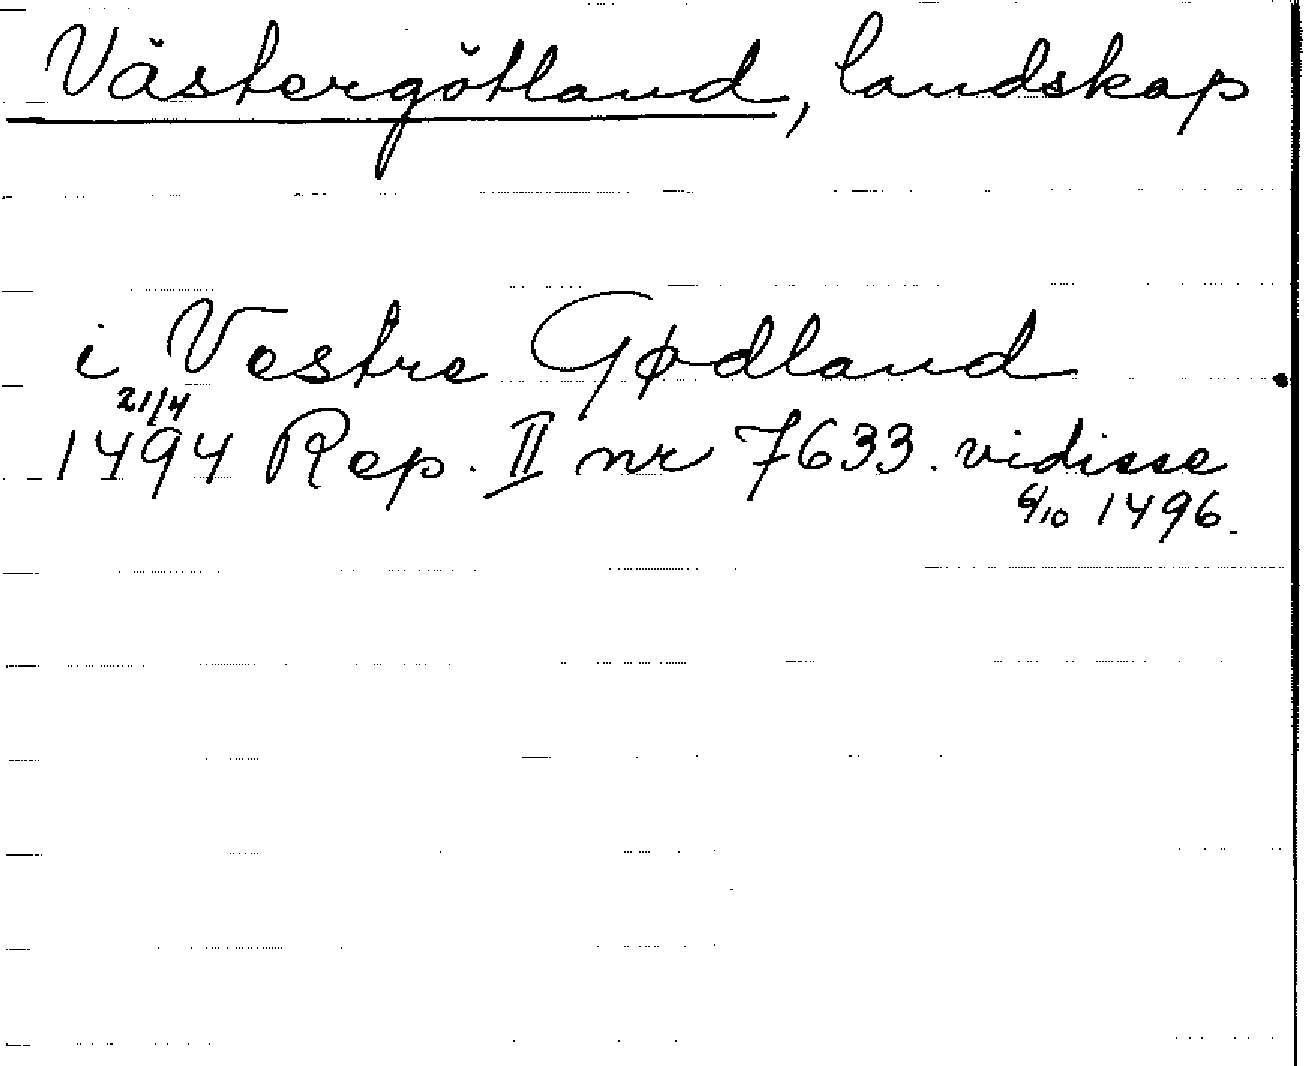 Västergötland, landskap
i Vestre Gødland
21/4
1494 Rep. II nr 7633. vidisse
6/10 1496.